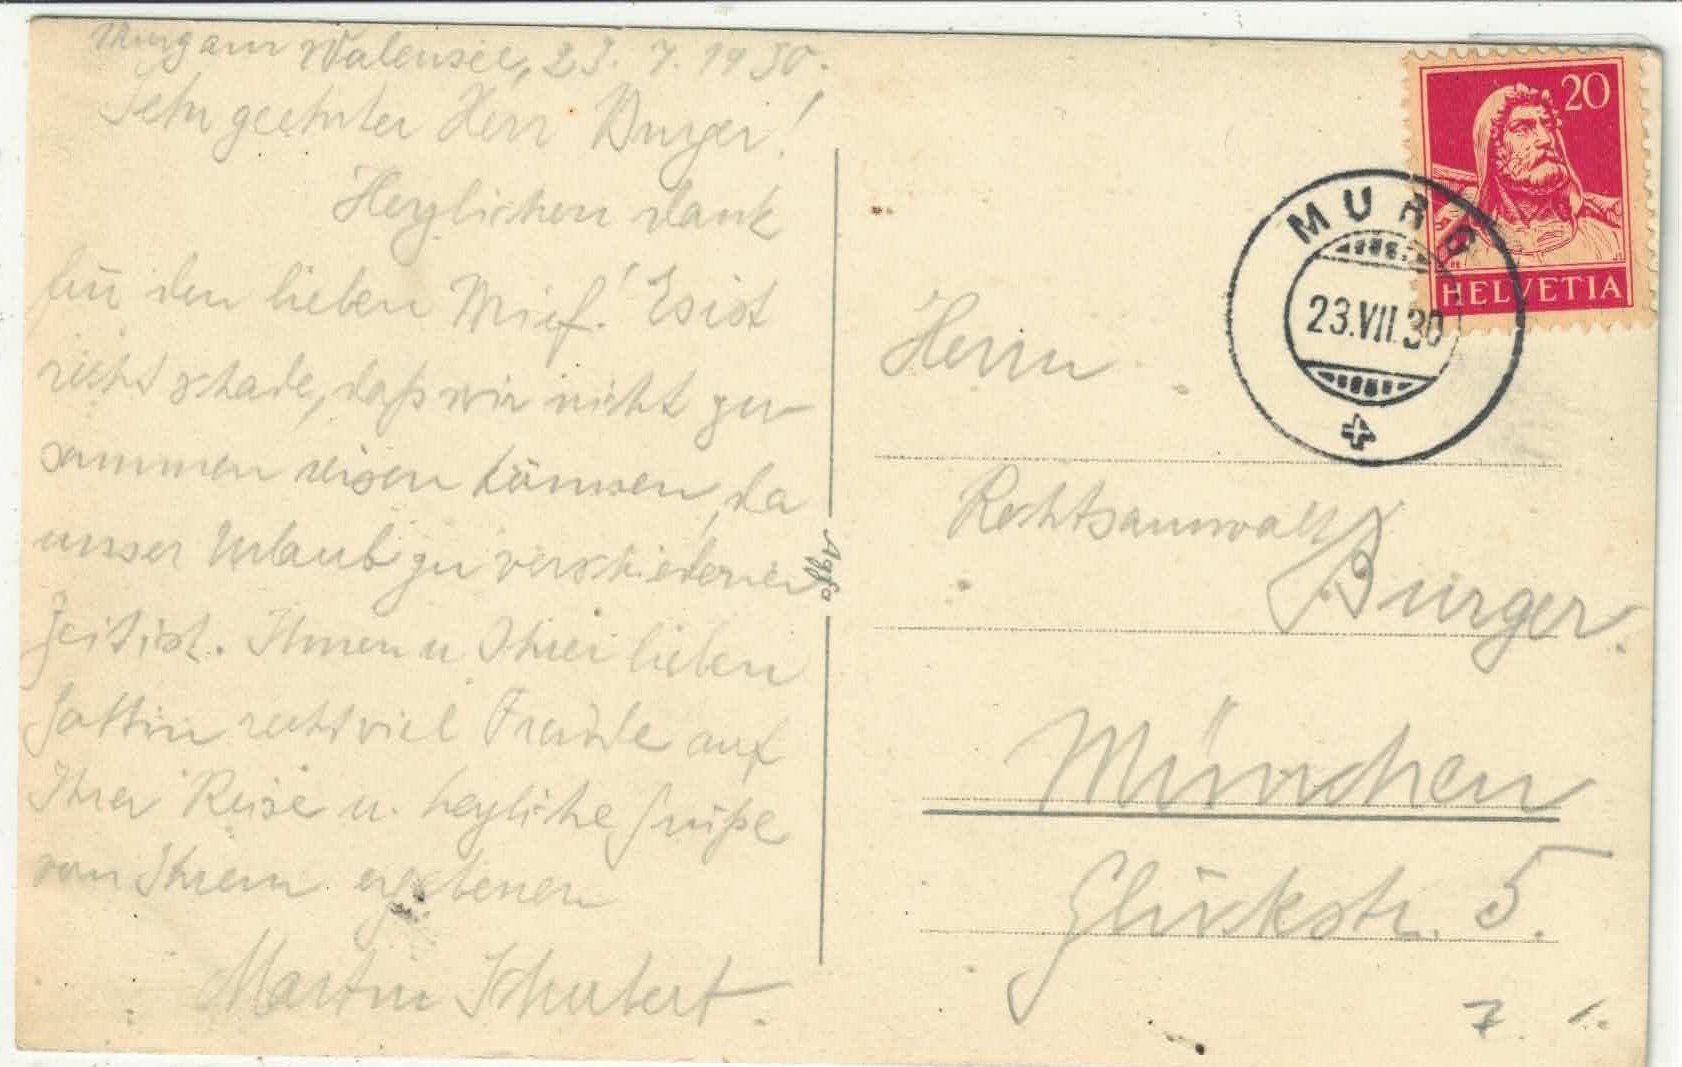 Murg am Walensee, 23. 7. 1930.
Sehr geehrter Herr Burger!
Herzlichen Dank
für den lieben Brief! Es ist
recht schade, daß wir nicht zu-
sammen reisen können, da
unser Urlaub zu verschiedener
Zeit ist. Ihnen u Ihrer lieben
Gattin recht viel Freude auf
Ihrer Reise u. herzliche Grüße
von Ihrem ergebenen
Martin Schubert.
Agfa
20
HELVETIA
MURG
23.VII.30
Herrn
Rechtsanwalt
Burger.
München
Glückstr. 5.
7.